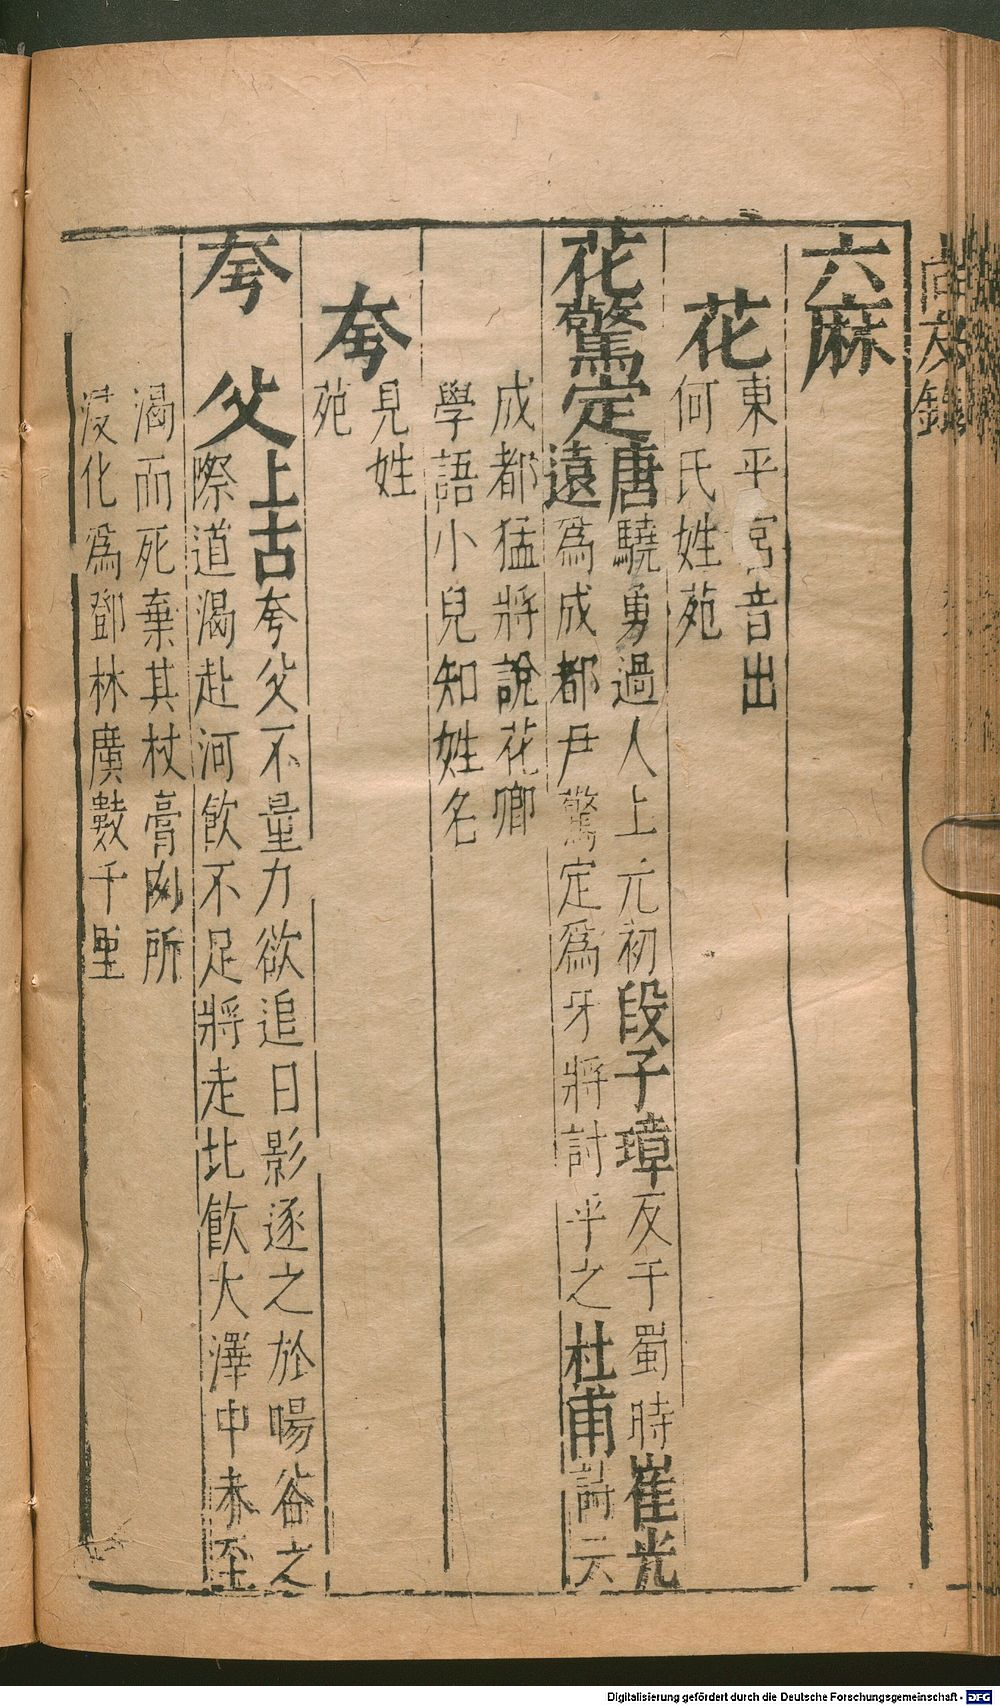 尚友錄
六麻
花
東平宮音出
何氏姓苑
花驚定
唐驍勇過人上元初段子璋反于蜀時崔光
遠爲成都尹驚定爲牙將討平之杜甫詩云
成都猛將說花卿
學語小兒知姓名
夸
見姓
苑
夸父
上古夸父不量力欲追日影逐之於暘谷之
際道渴赴河飮不足將走北飮大澤中未至
渴而死棄其杖膏肉所
浸化爲鄧林廣數千里
Digitalisierung gefördert durch die Deutsche Forschungsgemeinschaft - DFG